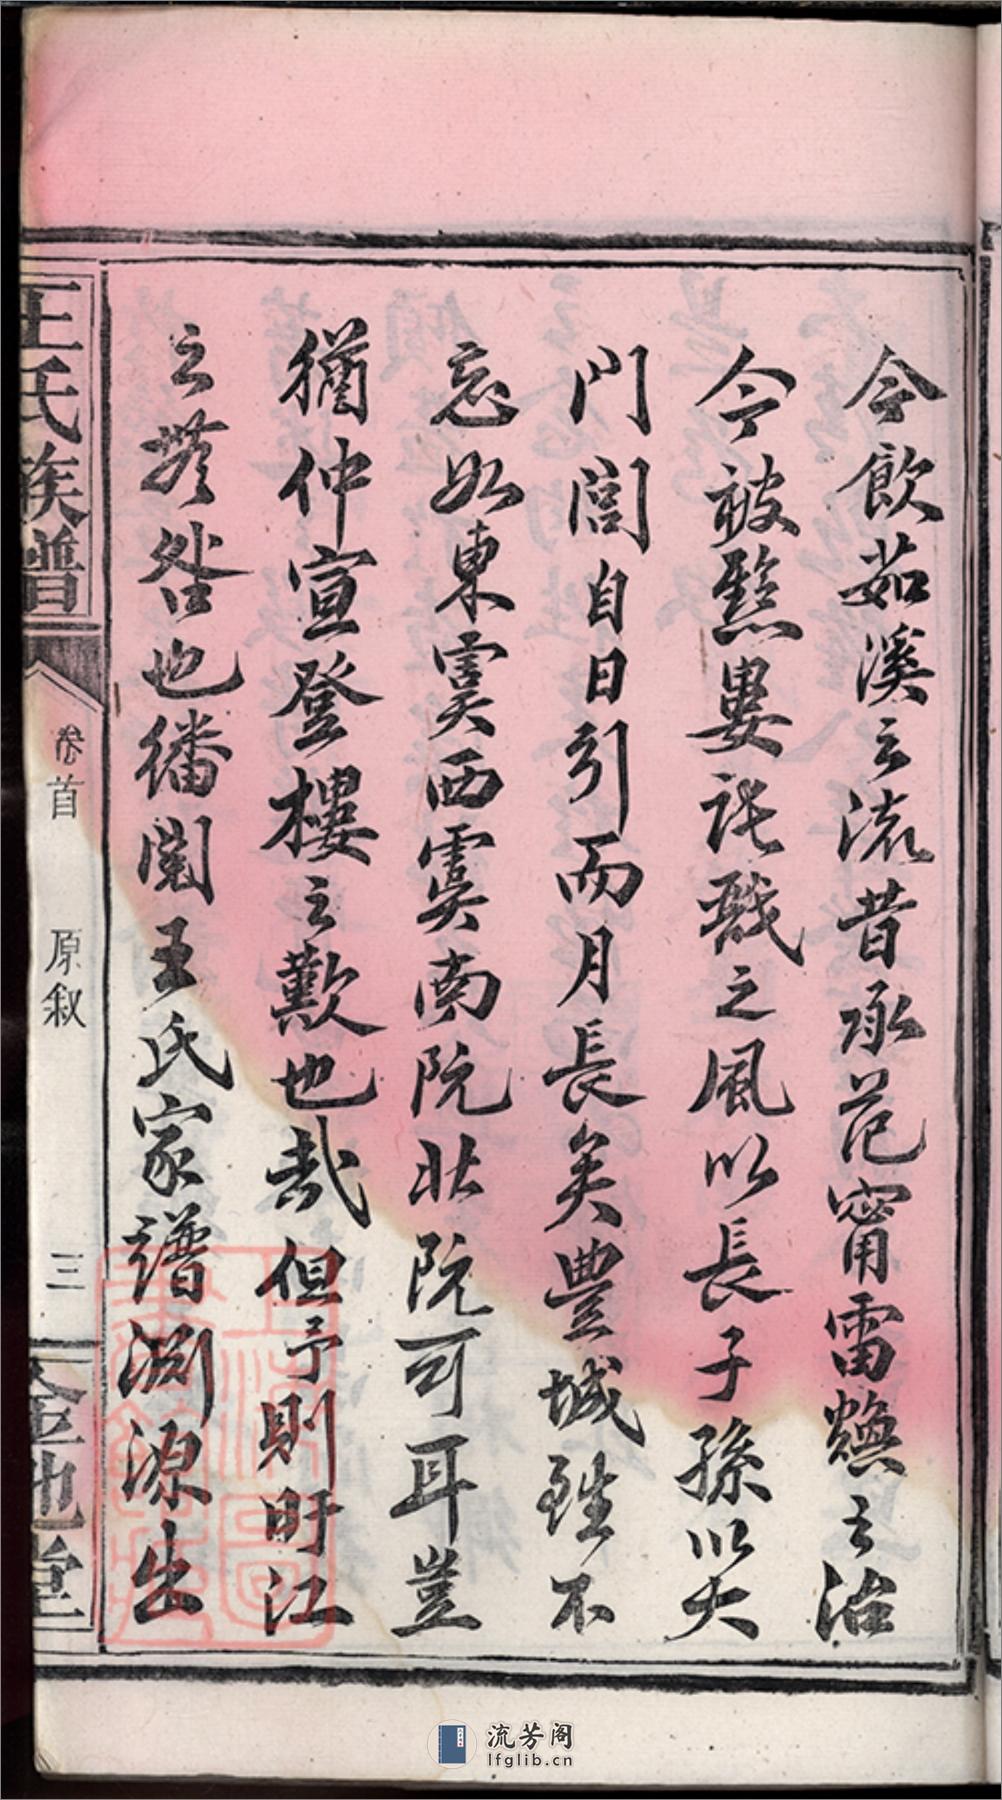 今飲茹溪之流昔承范甯雷煥之治
今被黟婁託戬之風以長子孫以大
門閭自日引而月長矣豐城雖不
忘如東虞西虞南阮北阮可耳豈
猶仲宣登樓之歎也哉但予則盱江
之嵾咎也繙閱王氏家譜淵源出
王氏族譜
卷首 原叙 三
金地堂
流芳阁
lfglib.cn